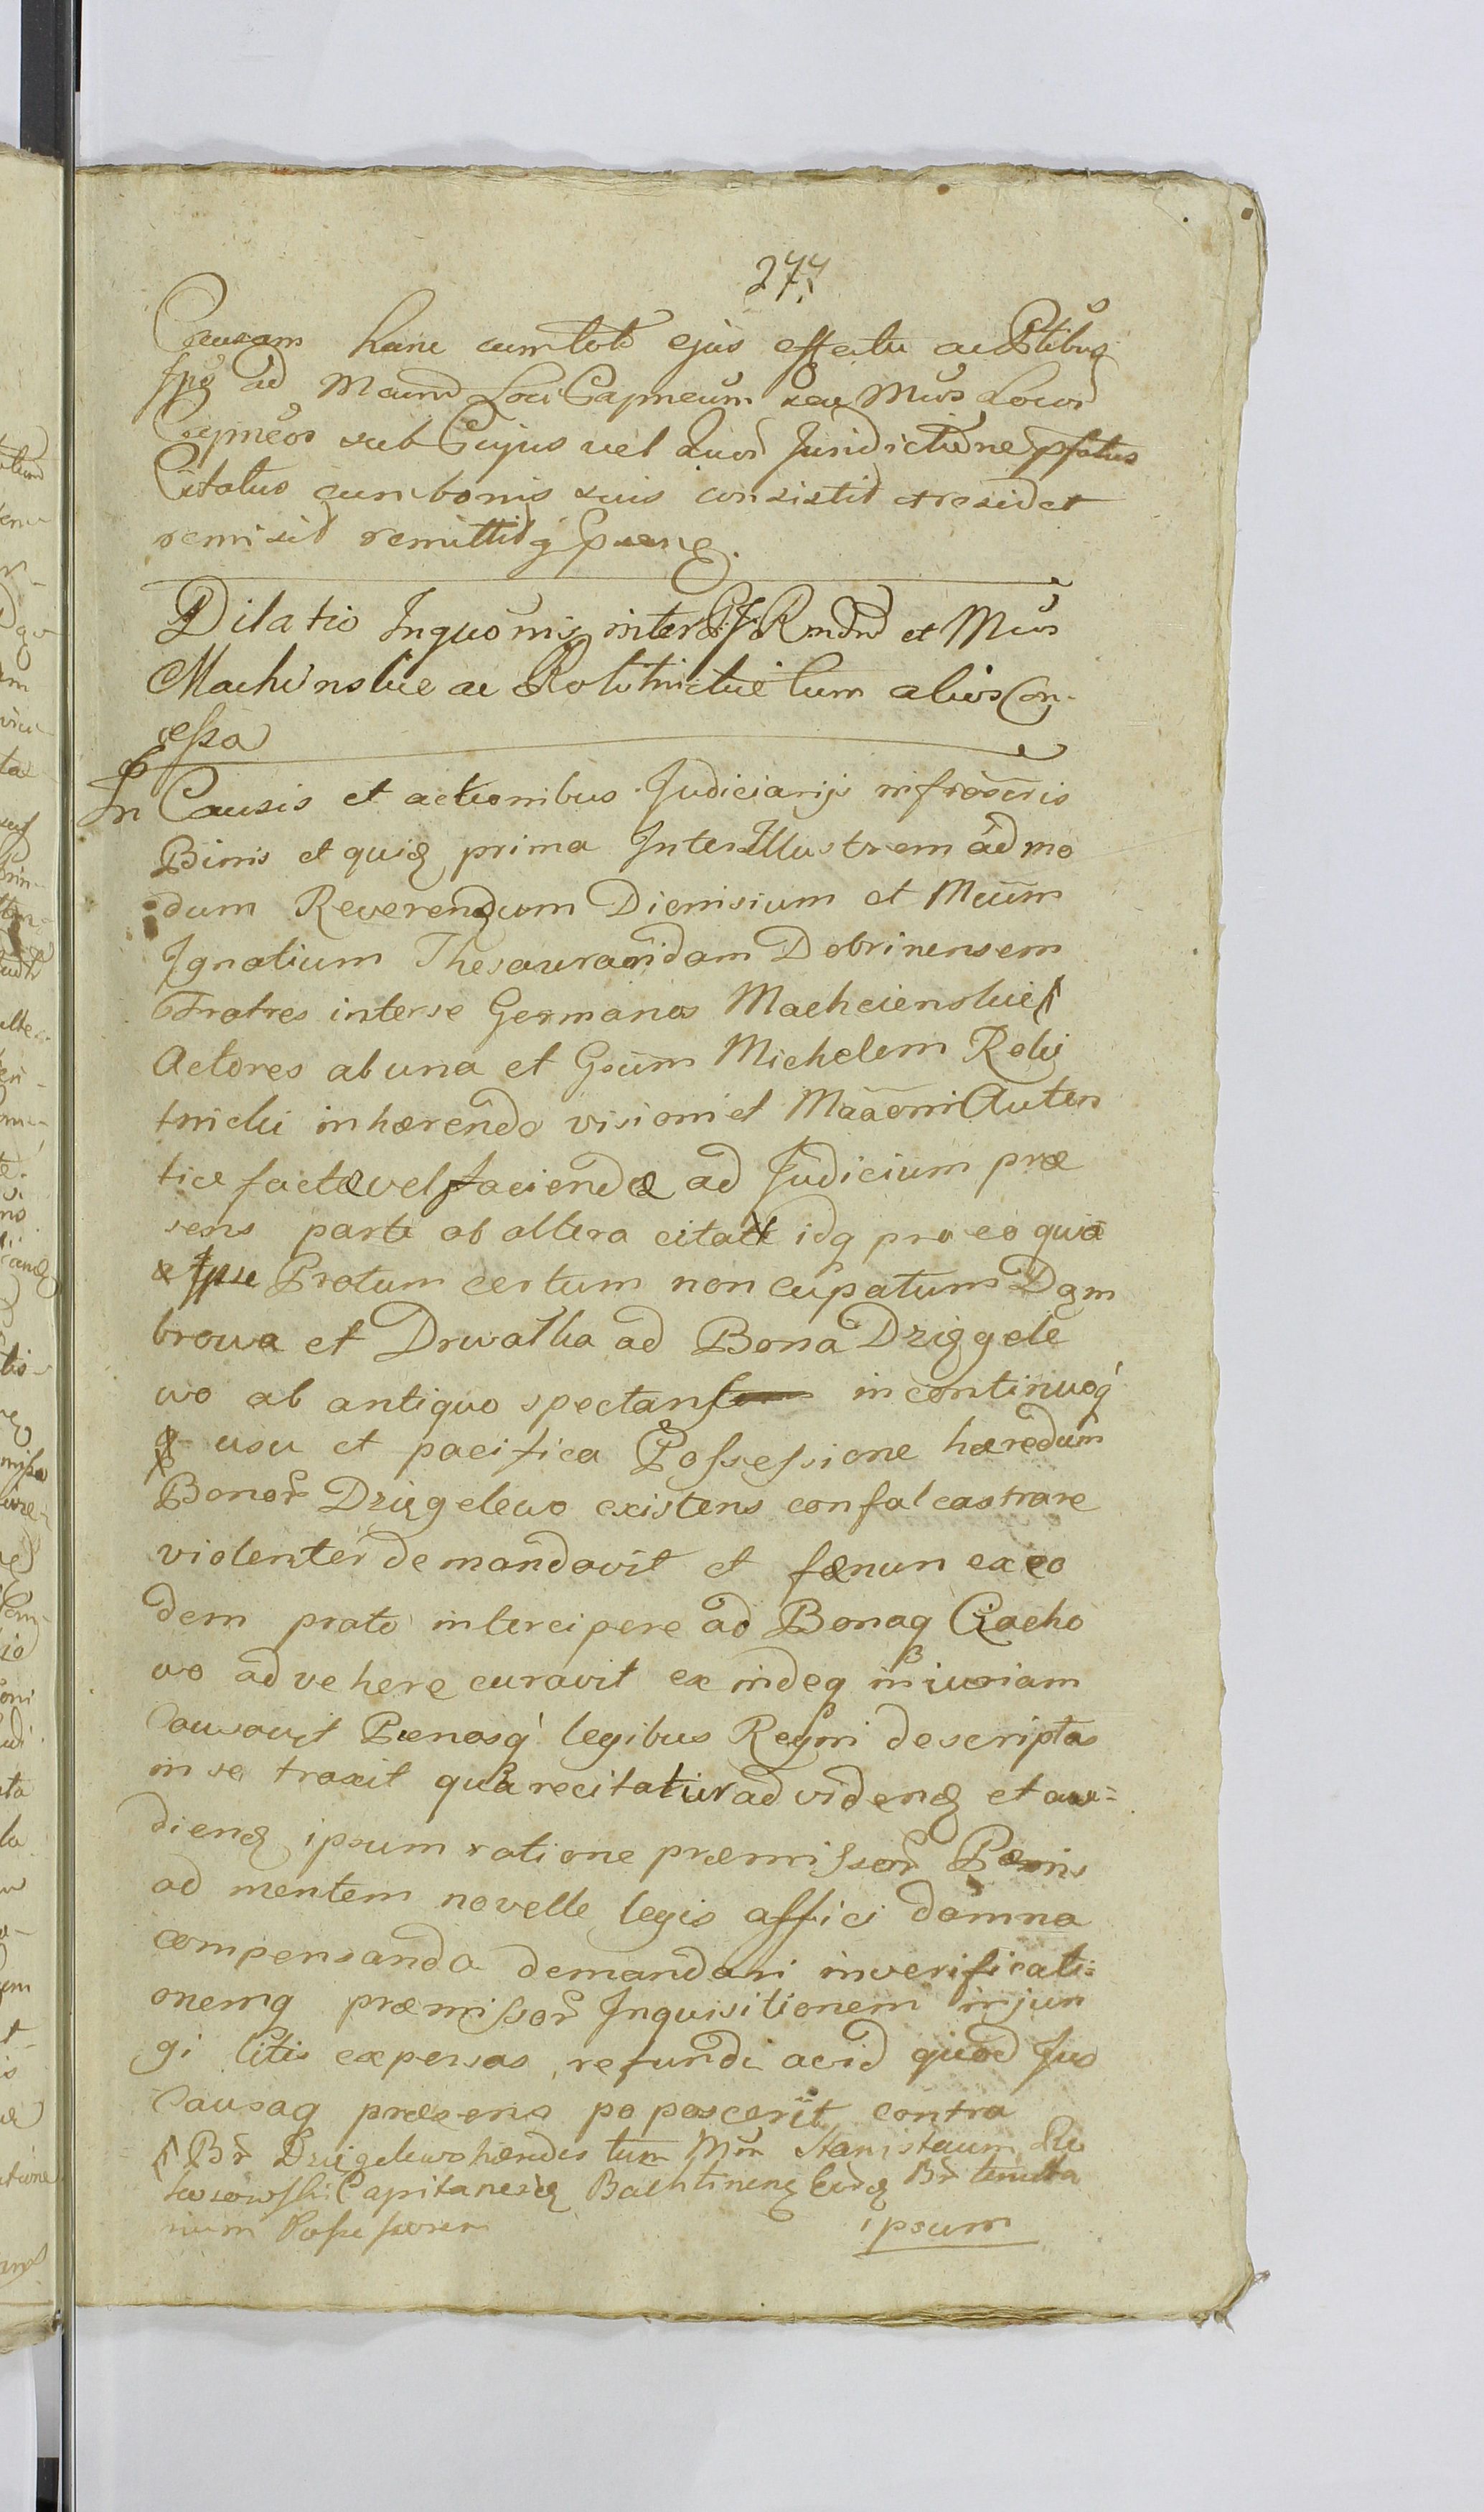 277
Causam hanc cum toto ejus effectu ac Ptibus
ad Mcum Loci Capneum seu Mcos Locor
Capneos sub Cujus vel quor Jurisdictione pfatus
Citatus cum bonis suis consistit et residet
remisit remittitq
Dilatio Inquonis inter Rndum et Mcos
Machcinskie ac Rolitnickie tum alios Con-
cessa
In Causis et actionibus Judiciarijs infrascris
Binis et quidem prima Inter Illustrem admo
dum Reverendum Dionisium et Mcum
Ignatium Thesauraridam Dobrinensem
Fratres inter se Germanos Machcienskie
Actores ab una et Gsum Michelem Roli
tnicki inhærendo visioni et Autten
ticæ factæ vel faciendæ ad Judicium præ
sens parte ab altera citat idq pro eo quia
ipse Pratum certum non cupatum Dąm
browa et Drwalka ad Bona Dzięgele
wo ab antiquo spectans in continuoq
usu et pacifica Possessione hæredum
Bonor Dzięgelewo existens confalcastrare
violenter demandavit et fænum ex eo
dem prato intercipere ad Bonaq Czacho
wo advehere curavit ex indeq injuriam
Causavit Pœnasq legibus Regni descriptas
in se traxit qua recitatur ad videnq et au=
dienq ipsum ratione præmissor Pænis
ad mentem novelle legis affici damna
compensanda demandari inverificati=
onemq præmissor Inquisitionem injun
gi litis expensas refundi acid quod Jus
Causaq præsens poposcerit contra
Br Dzięgelewo hæredes tum Mcm Stanislaum
Capitanei Br tenuta
rium Possessorem
ipsum